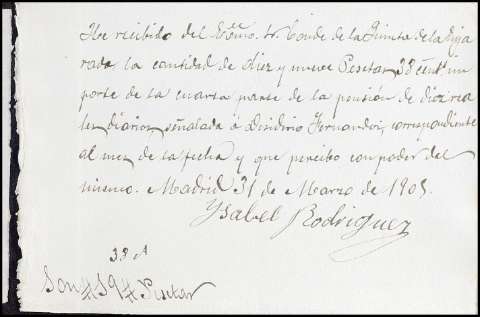 He recibido del Excmo. Sr. Conde de la Quinta de la Enja
rada la cantidad de diez y nueve Pesetas 38 cents. im
porte de la cuarta parte de la pensión de diez rea
les diarios señalada á Desiderio Fernandez, correspondiente
al mes de la fecha y que percibo con poder del
mismo. Madrid 31 de Marzo de 1905.
Ysabel Rodriguez
38 cs
Son # 19 # Pesetas